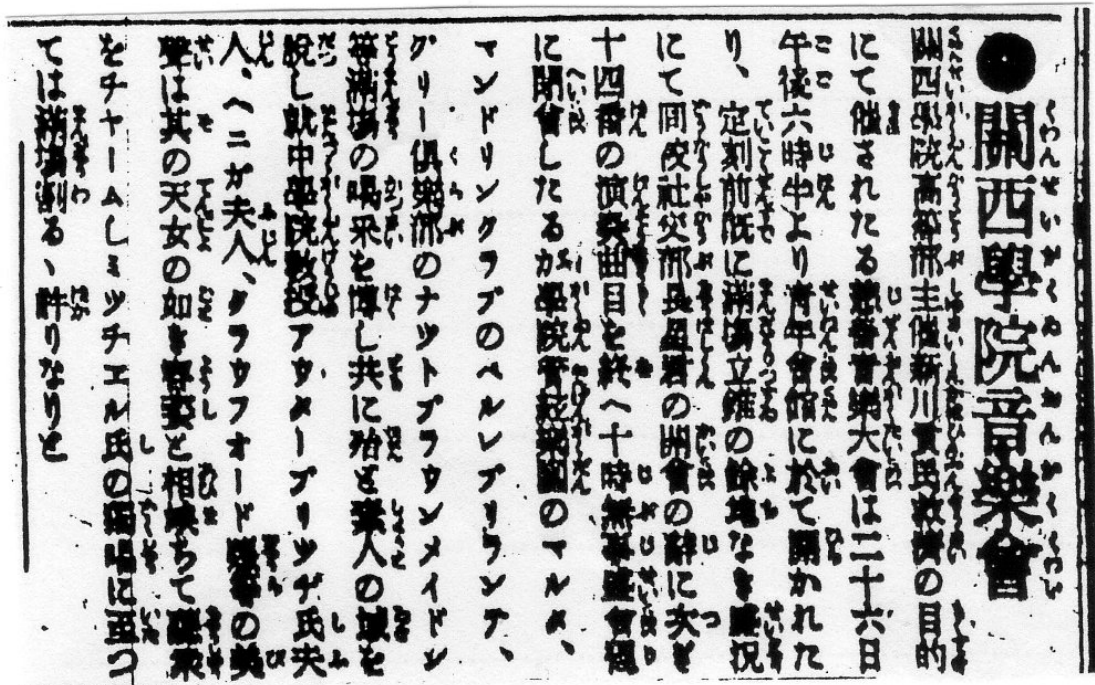 ●關西學院音樂會
關西學院高等部主催新川貧民救濟の目的
にて催されたる慈善音樂大會は二十六日
午後六時半より青年會館に於て開かれた
り、定刻前既に滿場立錐の餘地なき盛況
にて同校社交部長畠君の開會の辭に次ぎ
十四番の演奏曲目を終へ十時無事盛會裡
に閉會したるが學院管絃樂團のマルメ、
マンドリンクラブのベルレブリランテ、
グリー倶樂部のナツトブラウンメイドン
等滿場の喝采を博し共に殆ど素人の域を
脱し就中學院教授アウターブリツヂ氏夫
人、ヘニガ夫人、クラウフオード孃等の美
聲は其の天女の如き容姿と相俟ちて聽衆
をチヤームしミツチエル氏の獨唱に至つ
ては滿場割るゝ許りなりと